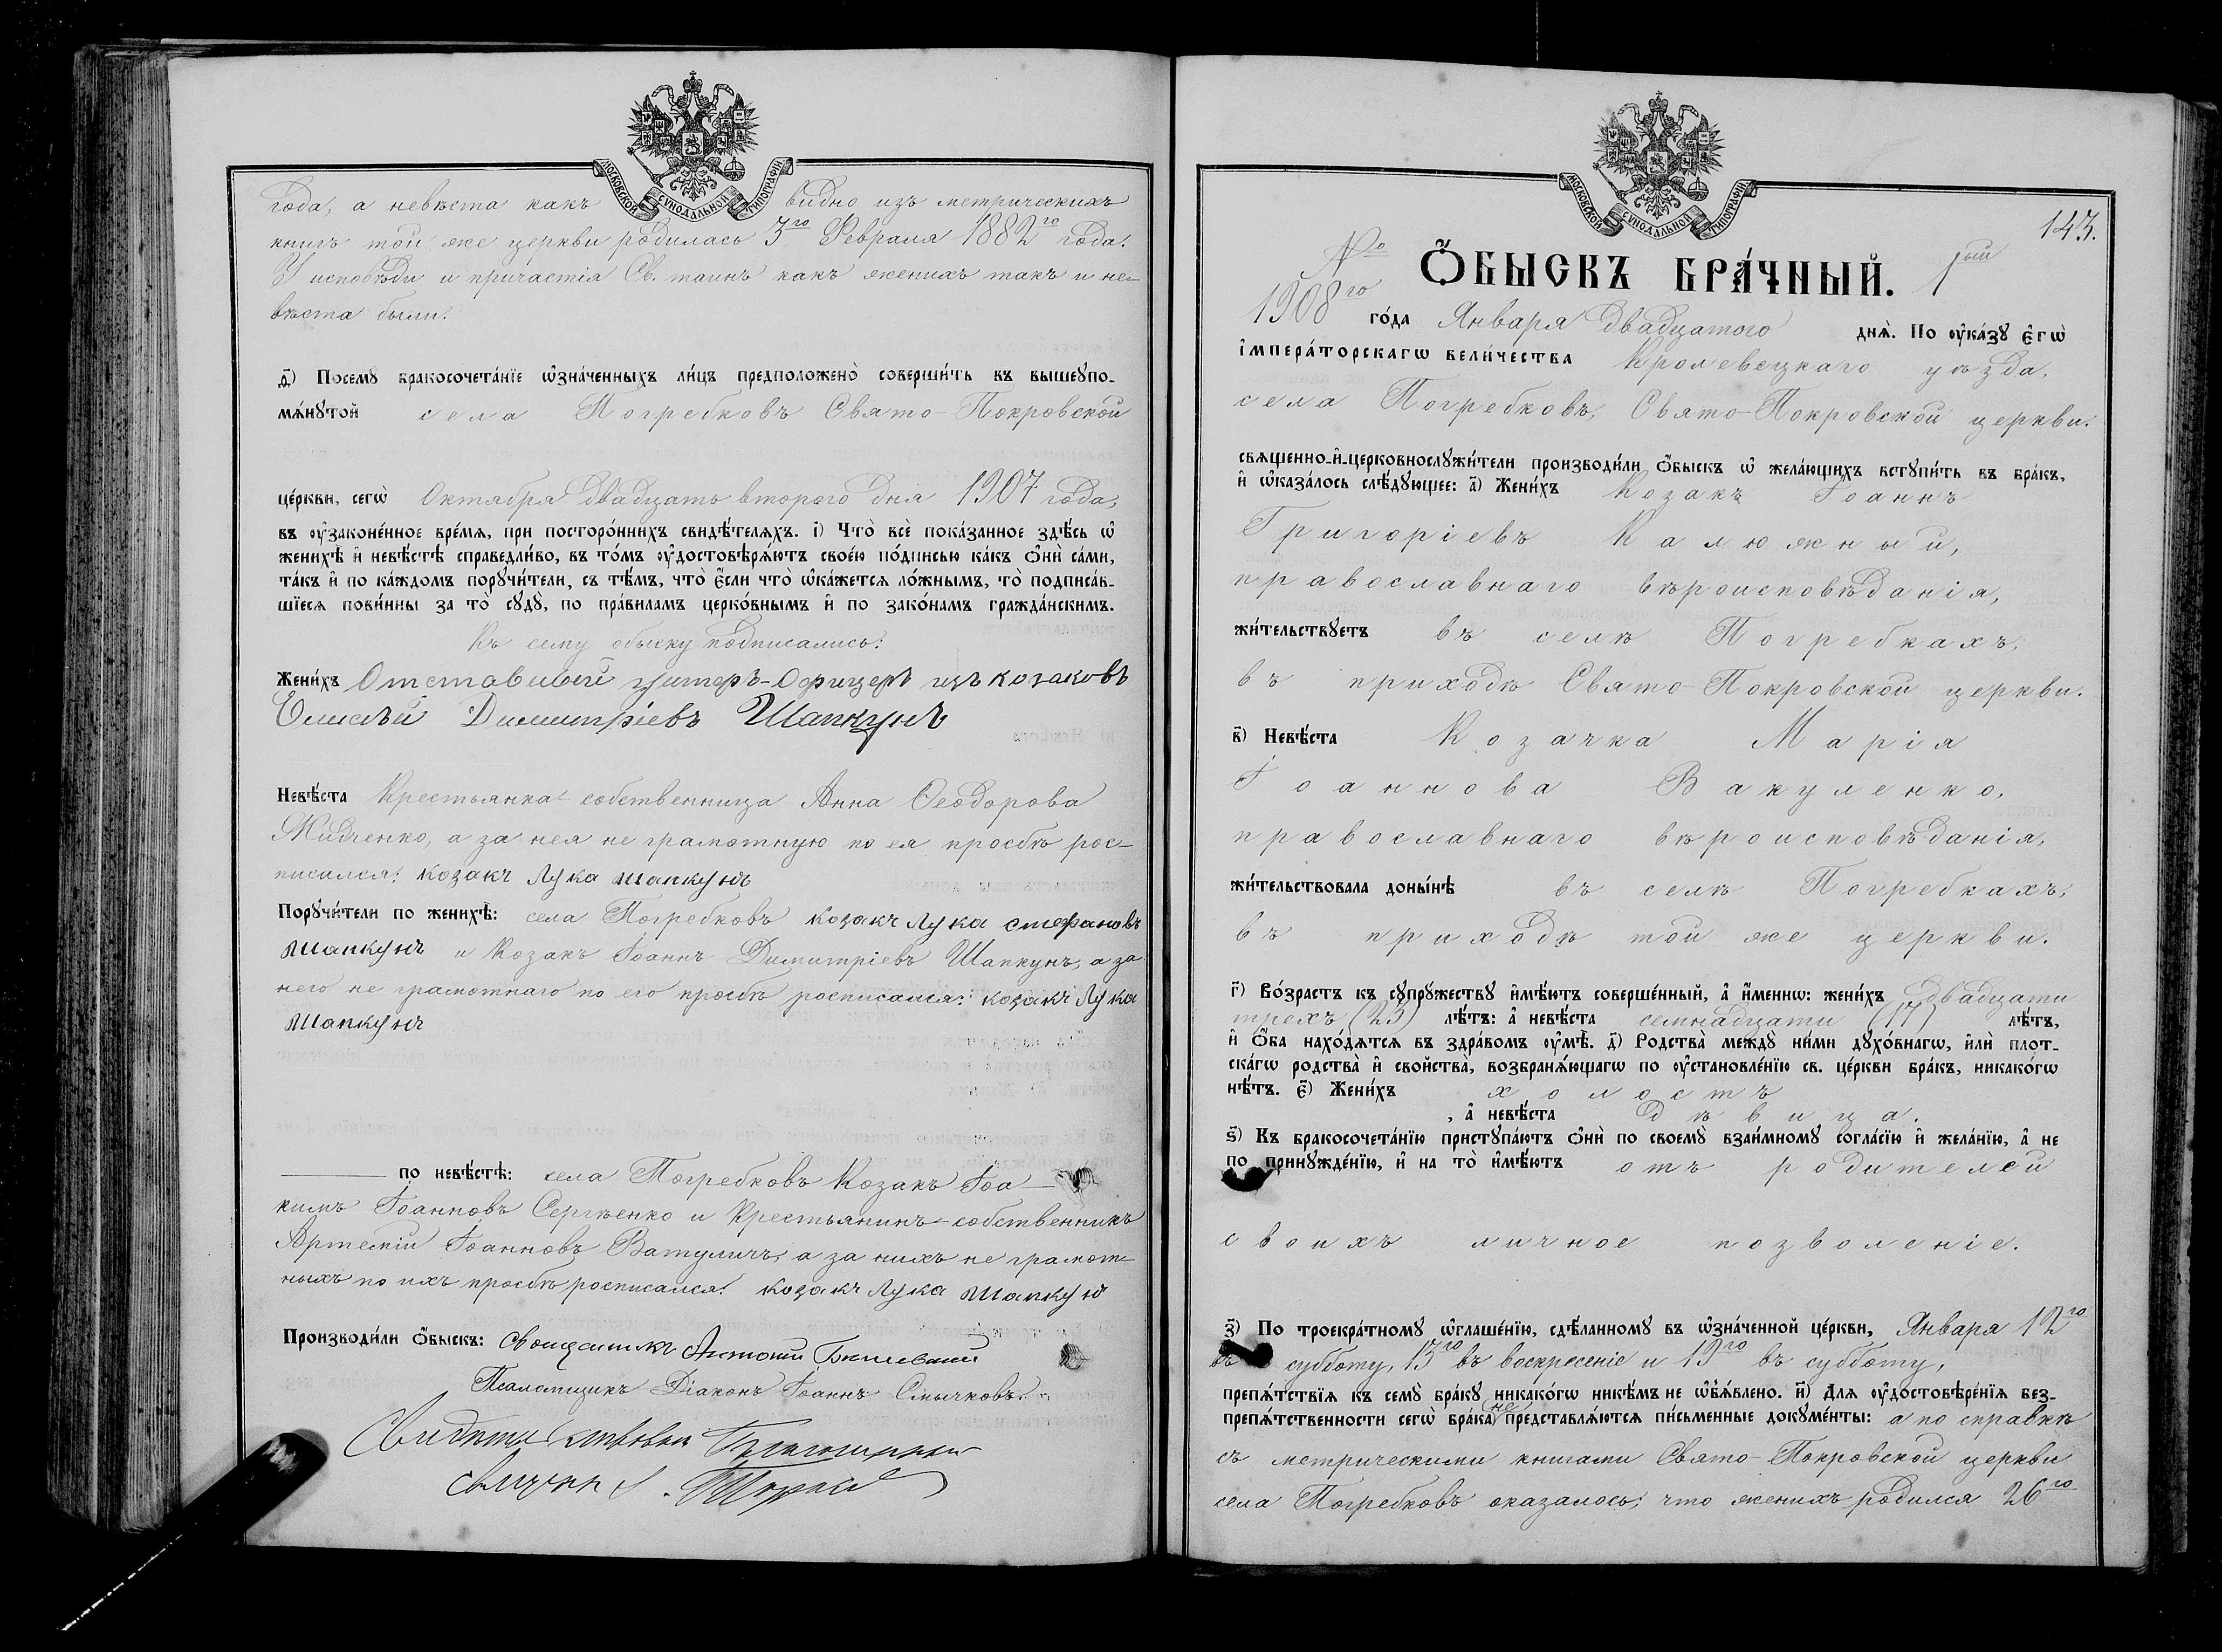 МОСКОВСКОЙ СѴНОДАЛЬНОЙ ТИПОГРАФІИ
года, а невѣста какъ видно изъ метрическихъ
книгъ той же церкви родилась 3го Февраля 1882го года.
У исповѣди и причастія Св. таинъ какъ женихъ такъ и не-
вѣста были.
д҃) Посемꙋ бракосочета́нїе ѡ҆зна́ченныхъ ли́цъ предположено̀ соверши́ть въ вышеꙋпо-
мѧ́нꙋтой села Погребковъ Свято-Покровской
це́ркви, сегѡ̀ Октября двадцать второго дня 1907 года,
въ ᲂу҆законе́нное вре́мѧ, при посторо́ннихъ свидѣ́телѧхъ. і҃) Что̀ всѐ пока́занное здѣ́сь ѡ҆
женихѣ̀ и҆ невѣ́стѣ справедли́во, въ то́мъ ᲂу҆достовѣрѧ́ютъ свое́ю по́дписью ка́къ ѻ҆нѝ са́ми,
та́къ и҆ по ка́ждомъ порꙋчи́тели, съ тѣ́мъ, что̀ є҆́сли что̀ ѡ҆ка́жетсѧ ло́жнымъ, то̀ подписа́в-
шїесѧ пови́нны за то̀ сꙋдꙋ̀, по пра́виламъ церко́внымъ и҆ по зако́намъ гражда́нскимъ.
Къ сему обыску подписались:
Жени́хъ Отставший унтеръ-Офицеръ изъ козаковъ
Елисѣй Димитріевъ Шапкунъ
Невѣ́ста Крестьянка собственница Анна Ѳеодорова
Жидченко, а за нея не грамотную по ея просьбѣ рос-
писался: козакъ Лука шапкунъ
Порꙋчи́тели по женихѣ̀: села Погребковъ козакъ Лука стефановъ
шапкунъ и Козакъ Іоаннъ Димитріевъ Шапкунъ, а за
него не грамотнаго по его просьбѣ росписался: козакъ Лука
шапкунъ
по невѣ́стѣ: села Погребковъ Козакъ Іоа-
кимъ Іоанновъ Сергѣенко и Крестьянинъ-собственникъ
Артемій Іоанновъ Ватуличъ, а за нихъ не грамот-
ныхъ по ихъ просьбѣ росписался: козакъ Лука шапкунъ
Производи́ли ѻ҆́быскъ: Священникъ Антоній
Псаломщикъ Діаконъ Іоаннъ Смычковъ.
МОСКОВСКОЙ СѴНОДАЛЬНОЙ ТИПОГРАФІИ
143.
№ Ѻ҆́БЫСКЪ БРА́ЧНЫЙ. 1ый
1908го го́да Января двадцатого днѧ̀. По ᲂу҆ка́зꙋ є҆гѡ̀
і҆мпера́торскагѡ вели́чества Кролевецкаго уѣзда,
села Погребковъ, Свято-Покровской церкви.
свѧщенно-и҆-церковнослꙋжи́тели производи́ли ѻ҆́быскъ ѡ҆ жела́ющихъ встꙋпи́ть въ бра́къ,
и҆ ѡ҆каза́лось слѣ́дꙋющее: а҃) Жени́хъ Козакъ Іоаннъ
Григоріевъ Калюжный,
православнаго вѣроисповѣданія,
жи́тельствꙋетъ въ селѣ Погребкахъ,
въ приходѣ Свято-Покровской церкви.
в҃) Невѣ́ста Козачка Марія
Іоаннова Вакуленко,
православнаго вѣроисповѣданія,
жи́тельствовала доны́нѣ въ селѣ Погребкахъ,
въ приходѣ той же церкви.
г҃) Во́зрастъ къ сꙋпрꙋ́жествꙋ и҆мѣ́ютъ соверше́нный, а҆ и҆́менно: жени́хъ двадцати
трехъ (23) лѣ́тъ: а҆ невѣ́ста семнадцати (17) лѣ́тъ,
и҆ ѻ҆́ба нахо́дѧтсѧ въ здра́вомъ ᲂу҆мѣ̀. д҃) Родства̀ междꙋ̀ ни́ми дꙋхо́внагѡ, и҆лѝ плот-
ска́гѡ родства̀ и҆ сво́йства̀, возбранѧ́ющагѡ по ᲂу҆становле́нїю св. це́ркви бра́къ, никако́гѡ
нѣ́тъ. є҃) Жени́хъ холостъ
, а҆ невѣ́ста дѣвица.
ѕ҃) Къ бракосочета́нїю пристꙋпа́ютъ ѻ҆нѝ по своемꙋ̀ взаи́мномꙋ согла́сїю и҆ жела́нїю, а҆ не
по принꙋжде́нїю, и҆ на то̀ и҆мѣ́ютъ отъ родителей
своихъ личное позволеніе.
з҃) По троекра́тномꙋ ѡ҆глаше́нїю, сдѣ́ланномꙋ въ ѡ҆зна́ченной це́ркви, Января 12го
въ субботу, 13го въ воскресеніе и 19го въ субботу,
препѧ́тствїѧ къ семꙋ̀ бра́кꙋ никако́гѡ никѣ́мъ не ѡ҆б̾ѧ́влено. и҃) Для ᲂу҆достовѣре́нїѧ без-
препѧ́тственности сегѡ̀ бра́ка не представлѧ́ютсѧ пи́сьменные докꙋме́нты: а по справкѣ
съ метрическими книгами Свято-Покровской церкви
села Погребковъ оказалось; что женихъ родился 26го